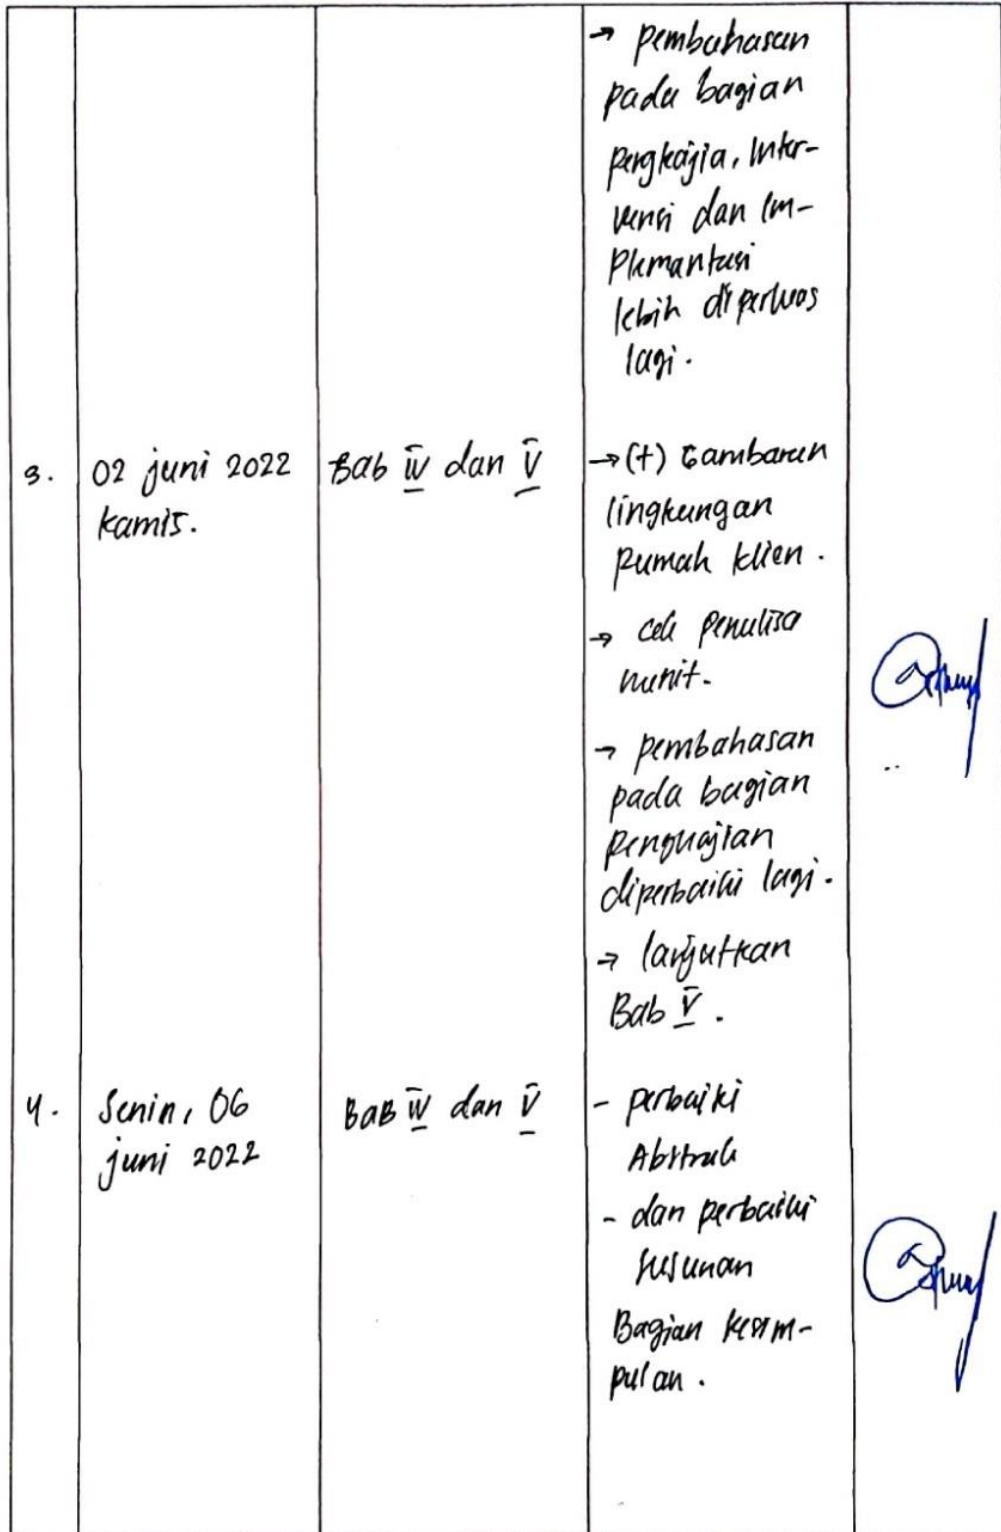 → pembahasan
pada bagian
pengkajia, Inter-
vensi dan Im-
plemantasi
lebih diperluas
lagi.
3. 02 juni 2022 Bab IV dan V → (+) Gambaran
kamis. lingkungan
Rumah klien.
→ cek penulisa
pembahasan
→ pembahasan
pada bagian
pengkajian
diperbaiki lagi.
→ lanjutkan
Bab V.
4. Senin, 06 BaB IV dan V - perbaiki
juni 2022 Abstrak
- dan perbaiki
susunan
Bagian kesim-
pulan.